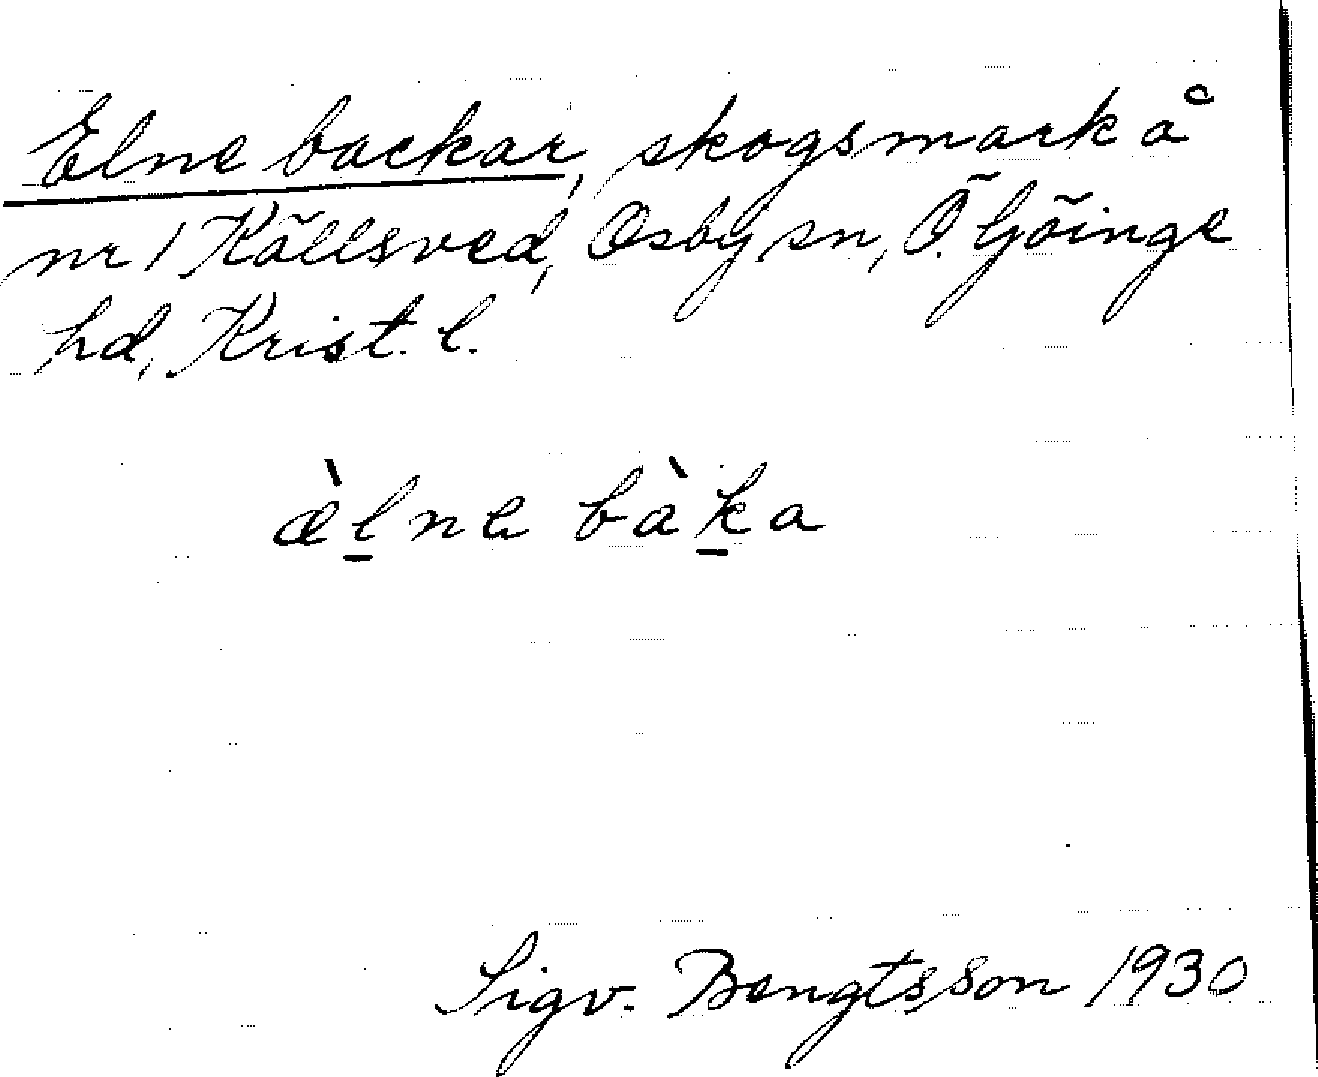 Elne backar, skogsmark å
nr 1 Källsved, Osby sn, Ö. Göinge
hd, Krist. l.
æ̀l̲ne bàk̲a
Sigv. Bengtsson 1930